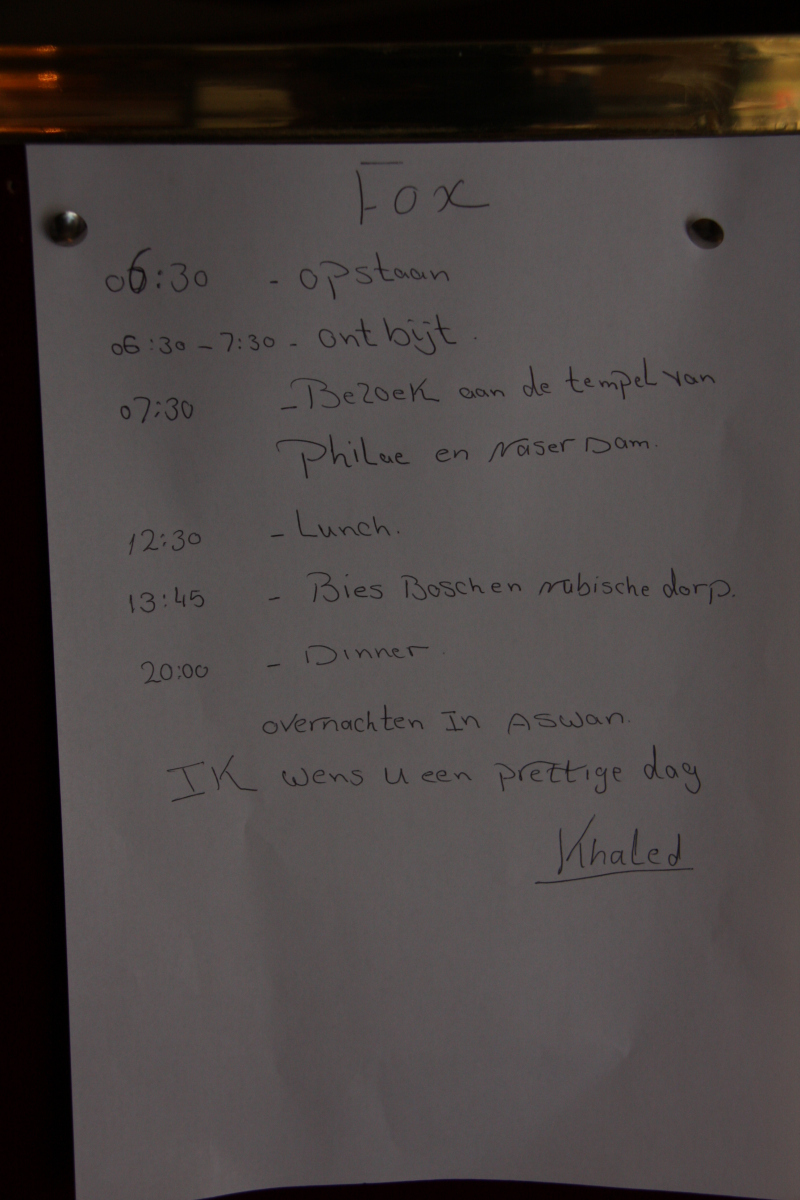 Fox
06:30 - opstaan
06:30 - 7:30 - ontbijt.
07:30 - Bezoek aan de tempel van
Philae en Naser Dam.
12:30 - Lunch.
13:45 - Bies Boschen nubische dorp.
20:00 - Dinner.
overnachten In Aswan.
IK wens u een prettige dag
Khaled